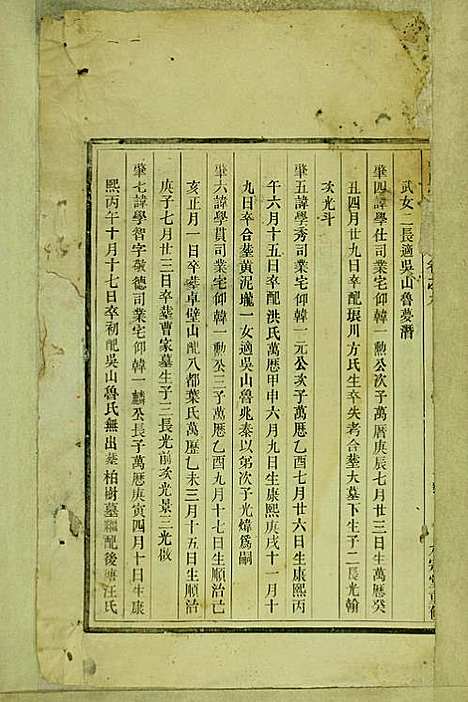 武女二長適吳山魯夢潛
肇四諱學仕司業宅仰韓一勲公次子萬曆庚辰七月廿三日生萬曆癸
丑四月廿九日卒配振川方氏生卒失考合塟大墓下生子二長光翰
次光斗
肇五諱學秀司業宅仰韓一元公次子萬曆乙酉七月廿六日生康熙丙
午六月十五日卒配洪氏萬曆甲申六月九日生康熙庚戌十一月十
九日卒合塟黃泥壠一女適吳山魯兆泰以弟次子光煒爲嗣
肇六諱學貫司業宅仰韓一勲公三子萬曆乙酉九月十七日生順治己
亥正月一日卒塟卓壁山配八都葉氏萬曆乙未三月十五日生順治
庚子七月廿三日卒塟曹家墓生子三長光前次光景三光啟
肇七諱學智字敬德司業宅仰韓一麟公長子萬曆庚寅四月十日生康
熙丙午十月十七日卒初配吳山魯氏無出塟柏樹墓繼配後塘汪氏